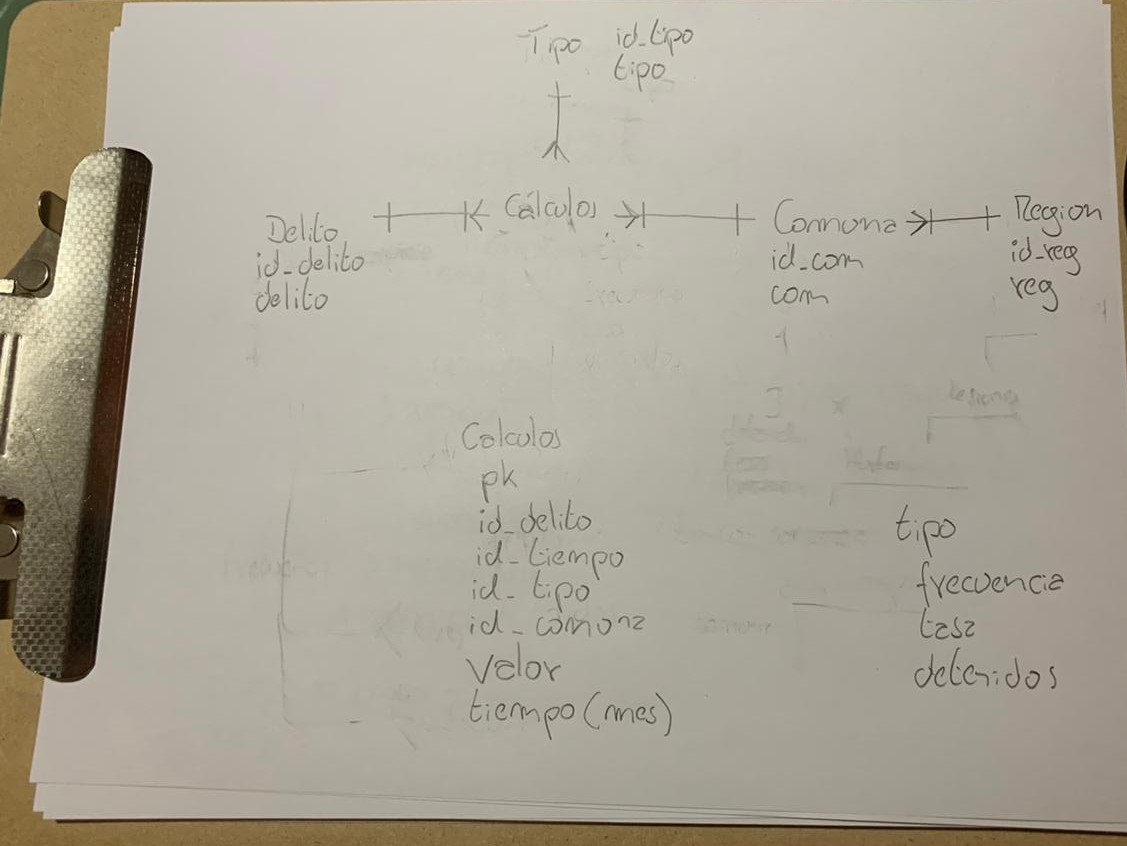 Tipo id_tipo
tipo
Delito
id_delito
delito
Cálculos
Comuna
id_com
com
Region
id_reg
reg
Calculos
pk
id_delito
id_tiempo
id_tipo
id_comuna
Valor
tiempo (mes)
tipo
frecuencia
tasa
detenidos